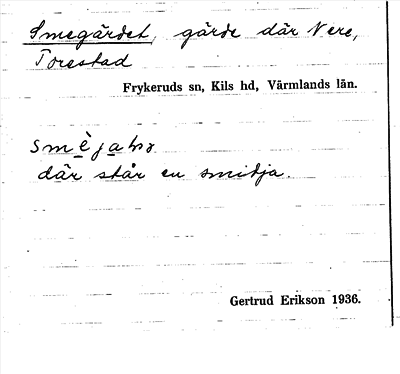 Smegärdet, gärde där Vere,
Torestad
Frykeruds sn, Kils hd, Värmlands län.
där står en smidja.
Gertrud Erikson 1936.